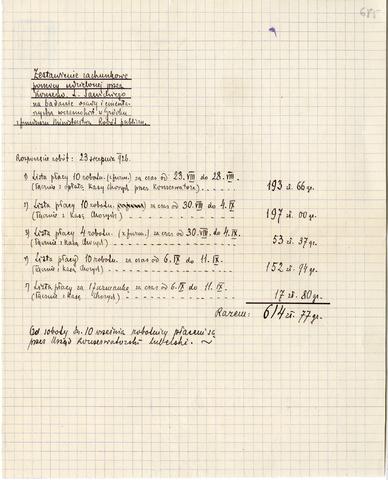 685
Zestawienie rachunkowe
pomocy udzielonej przez
Konserw. L. Sawickiego
na badanie osady i cmenta-
rzyska wczesnohist. w Gródku
z funduszu Ministerstwa Robót publiczn.
Rozpoczęcie robót: 23 sierpnia 926.
1) Lista płacy 10 robotn. (z furm.) za czas od 23.VIII do 28.VIII.
(łącznie z opłatą Kasy Chorych przez Konserwatora) . . . . . 193 zł. 66 gr.
2) Lista płacy 10 robotn. za czas od 30.VIII do 4.IX
(łącznie z Kasą Chorych) . . . . . 197 zł. 00 gr.
3) Lista płacy 4 robotn. (z furm.) za czas od 30.VIII do 4.IX.
(łącznie z Kasą Chorych) . . . . . 53 zł. 37 gr.
Lista płacy 10 robotn. za czas od 6.IX do 11.IX.
(łącznie z Kasą Chorych) . . . . . 152 zł. 94 gr.
Lista płacy za 1 furmankę za czas od 6.IX do 11.IX.
(łącznie z Kasą Chorych) . . . . . 17 zł. 80 gr.
Razem: 614 zł. 77 gr.
Od soboty dn. 10 września robotnicy płaceni są
przez Urząd Konserwatorski Lubelski.